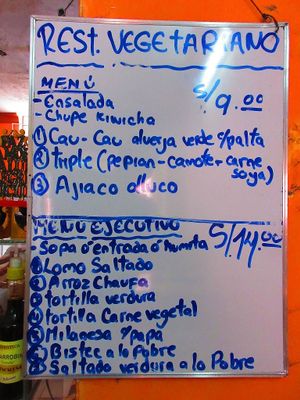 REST. VEGETARIANO
MENÚ S/9.00
-Ensalada
-Chupe kiwicha
① Cau-Cau alverja verde s/palta
② triple (pepian-camote-carne
soya)
③ Ajiaco olluco
MENÚ EJECUTIVO S/14.00
-Sopa ó entrada ó humita
Lomo Saltado
Arroz Chaufa
tortilla verdura
tortilla Carne vegetal
Milanesa s/papa
Bistec a lo Pobre
Saltado verdura a lo Pobre